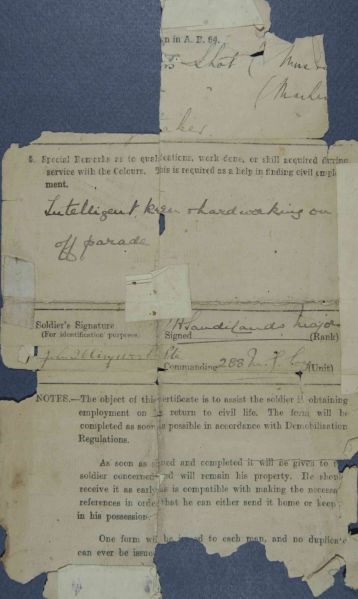 wn in A. B. 64.
Shot ( Mus
" (Marks
5. Special Remarks as to qualifications, work done, or skill acquired during
service with the Colours. This is required as a help in finding civil employ
ment.
Intelligent keen & hard working on
off parade
Soldier's Signature
(For identification purposes.
Signed Major (Rank)
Commanding 288 M. G. Coy (Unit)
NOTES.—The object of this certificate is to assist the soldier in obtaining
employment on return to civil life. The form will be
completed as soon as possible in accordance with Demobilisation
Regulations.
As soon as signed and completed it will be given to the
soldier concerned and will remain his property. He should
receive it as early as is compatible with making the necessary
references in order that he can either send it home or keep
in his possession.
One form will be issued to each man, and no duplicate
can ever be issued